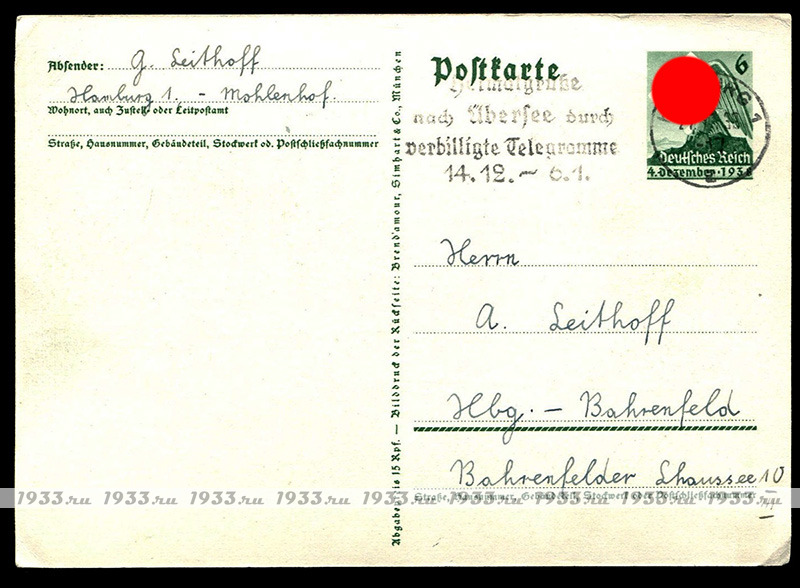 Absender: G. Leithoff
Hamburg 1. - Mohlenhof.
Wohnort, auch Zustell- oder Leitpostamt
Straße, Hausnummer, Gebäudeteil, Stockwerk od. Postschließfachnummer
Abgabepreis 15 Rpf. — Bilddruck der Rückseite: Brend'amour, Simhart & Co., München
Postkarte
Heimatgrüße
nach Übersee durch
verbilligte Telegramme
14.12. – 6.1.
6
Deutsches Reich
4. Dezember · 1938
Herrn
A. Leithoff
Hbg. - Bahrenfeld
Bahrenfelder Chaussee 10
Straße, Hausnummer, Gebäudeteil, Stockwerk oder Postschließfachnummer
1933.ru 1933.ru 1933.ru 1933.ru 1933.ru 1933.ru 1933.ru 1933.ru 1933.ru